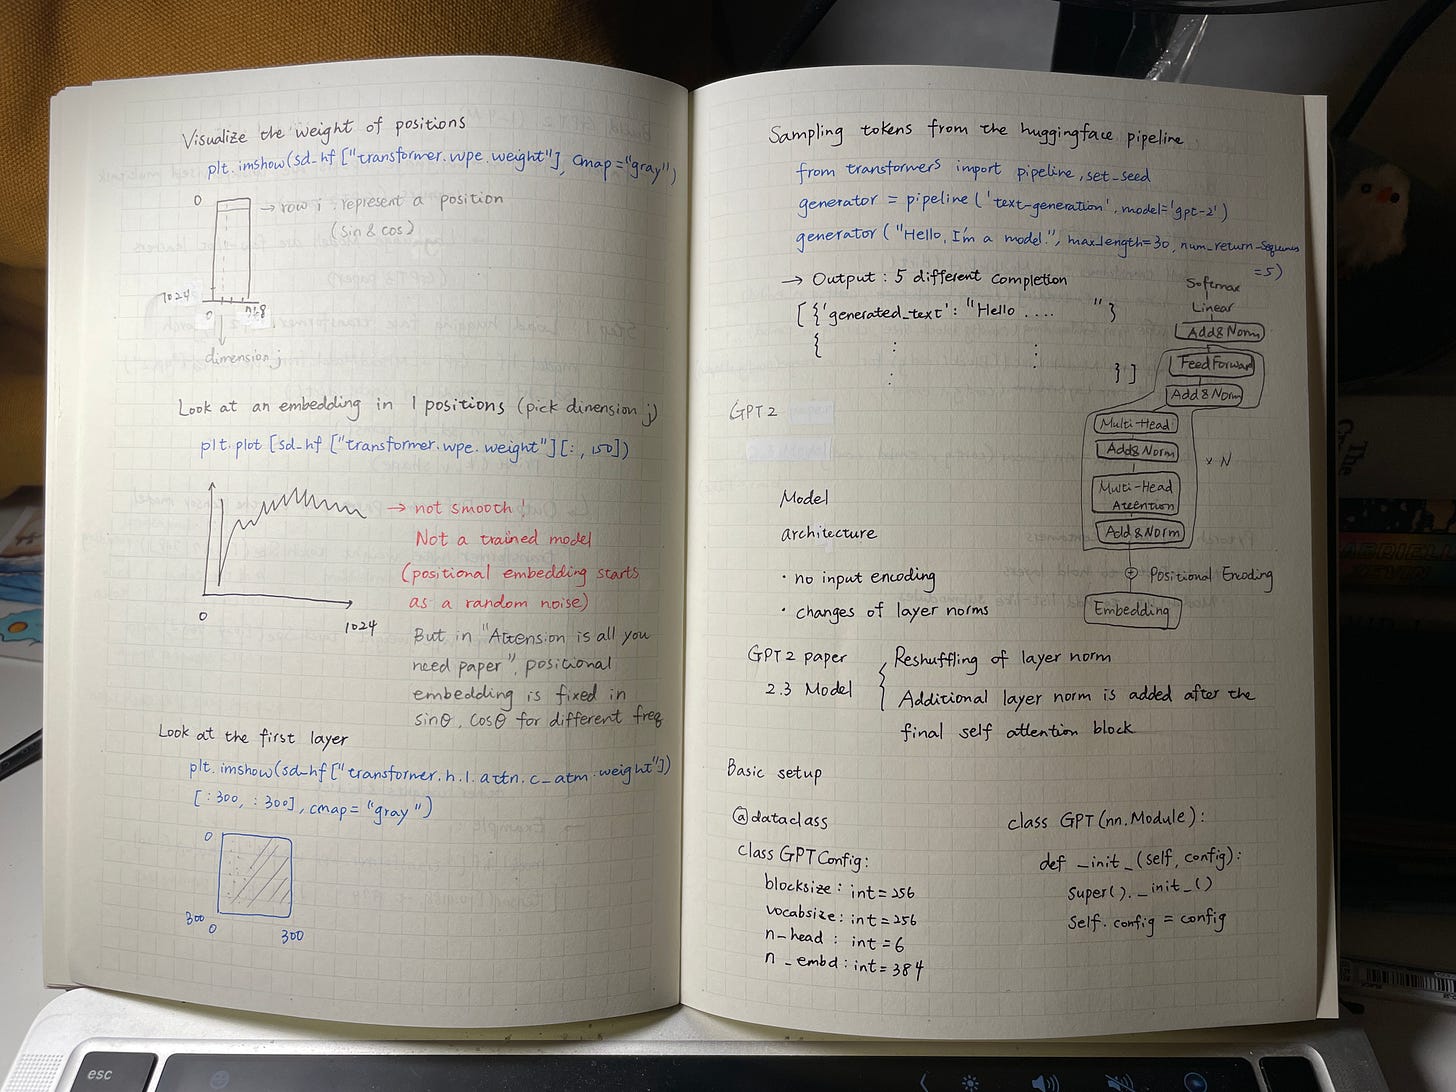 Visualize the weight of positions
plt.imshow(sd_hf["transformer.wpe.weight"], cmap="gray")
0
→ row i : represent a position
(sin & cos)
1024
0
768
dimension j
Look at an embedding in 1 positions (pick dinension j)
plt.plot [sd_hf ["transformer.wpe.weight"][:, 150])
→ not smooth!
Not a trained model
(positional embedding starts
as a random noise)
0
1024
But in "Attension is all you
need paper", positional
embedding is fixed in
sinθ, cosθ for different freq
Look at the first layer
plt.imshow(sd_hf["transformer.h.1.attn.c_attn.weight"])
[:300, :300], cmap="gray")
0
300
0
300
Sampling tokens from the huggingface pipeline
from transformers import pipeline, set_seed
generator = pipeline('text-generation', model='gpt-2')
generator("Hello, I'm a model.", max_length=30, num_return_sequences
=5)
→ Output : 5 different completion
[{'generated_text': "Hello .... "}
{
}]
Softmax
Linear
Add&Norm
Feed Forward
Add&Norm
Multi-Head
Add&Norm
× N
Multi-Head
Attention
Add&Norm
+ Positional Encoding
Embedding
GPT2
Model
architecture
· no input encoding
· changes of layer norms
GPT2 paper
2.3 Model
{ Reshuffling of layer norm
Additional layer norm is added after the
final self attention block
Basic setup
@dataclass
class GPTConfig:
blocksize : int = 256
vocabsize : int = 256
n_head : int = 6
n_embd : int = 384
class GPT(nn.Module):
def _init_(self, config):
super()._init_()
self.config = config
esc